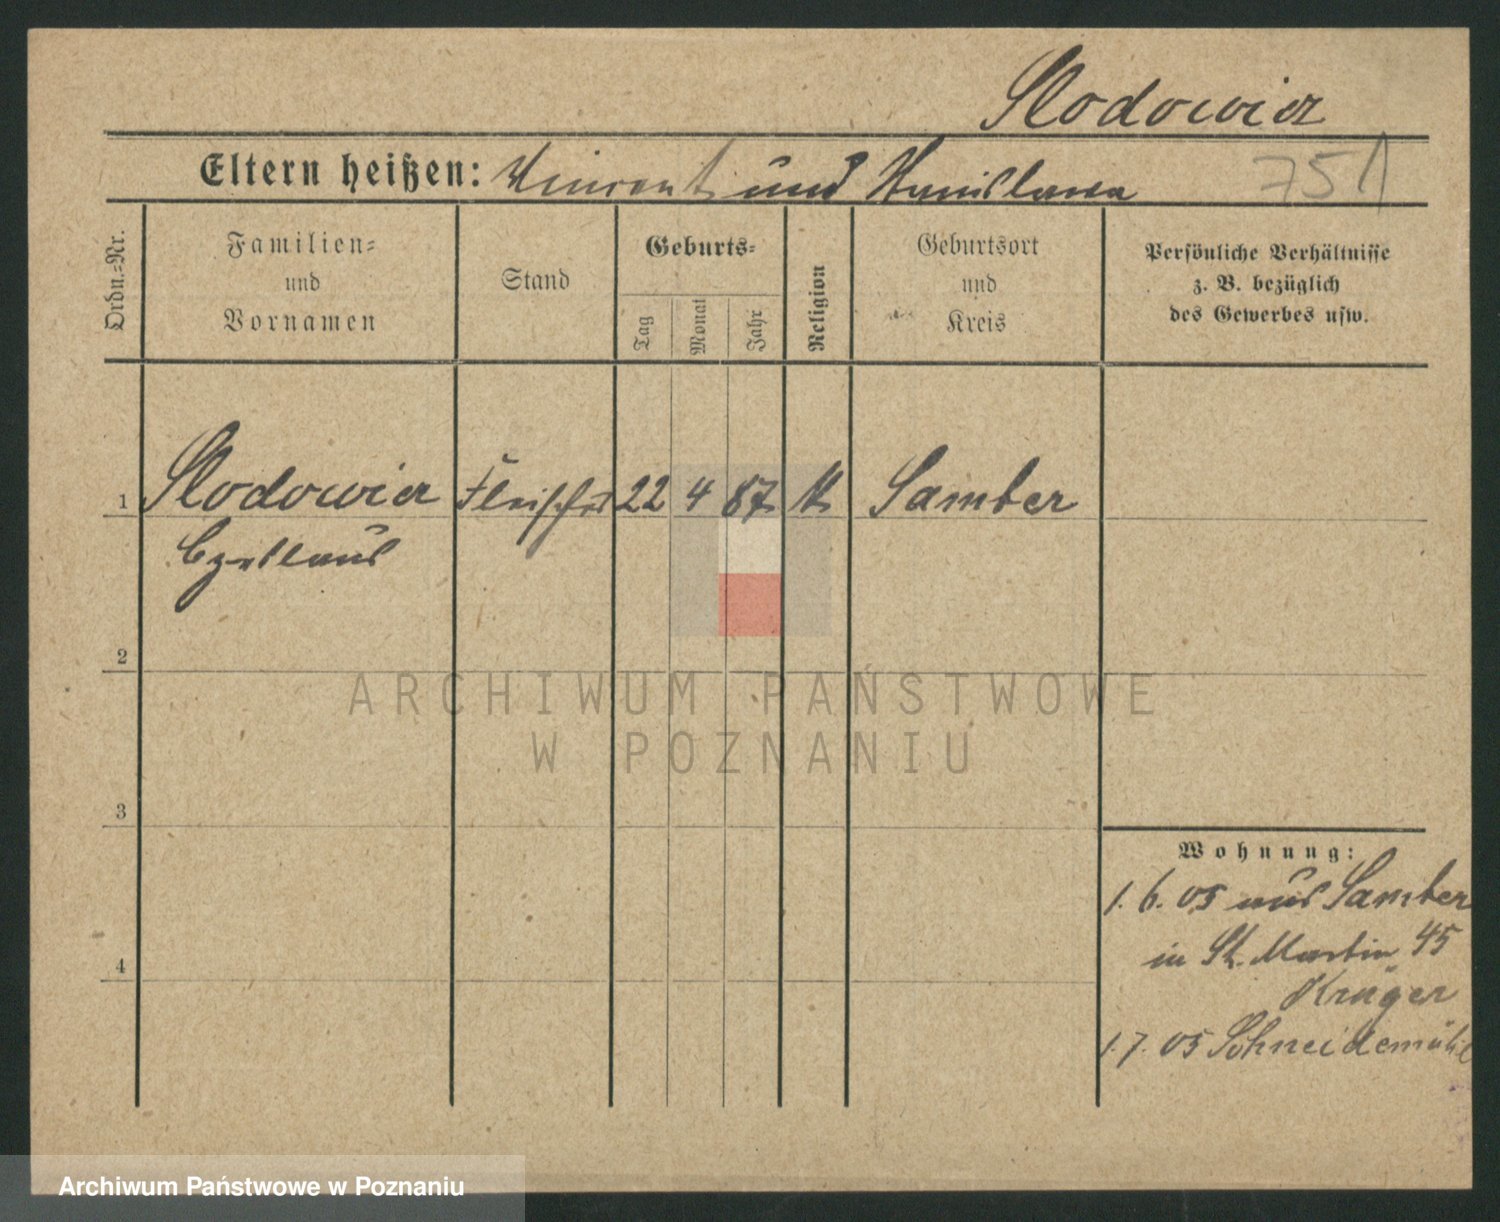 Slodowicz
Eltern heißen: Vincent und Stanislawa
751
Ordn.=Nr.
Familien=
und
Vornamen
Stand
Geburts=
Tag
Monat
Jahr
Religion
Geburtsort
und
Kreis
Persönliche Verhältnisse
z. B. bezüglich
des Gewerbes usw.
1 Slodowicz Fleischer 22 4 87 k Samter
Czeslaus
2
3
4
Wohnung:
1. 6. 05 aus Samter
in St. Martin 45
Krüger
1. 7. 05 Schneidemühl
ARCHIWUM PAŃSTWOWE
W POZNANIU
Archiwum Państwowe w Poznaniu